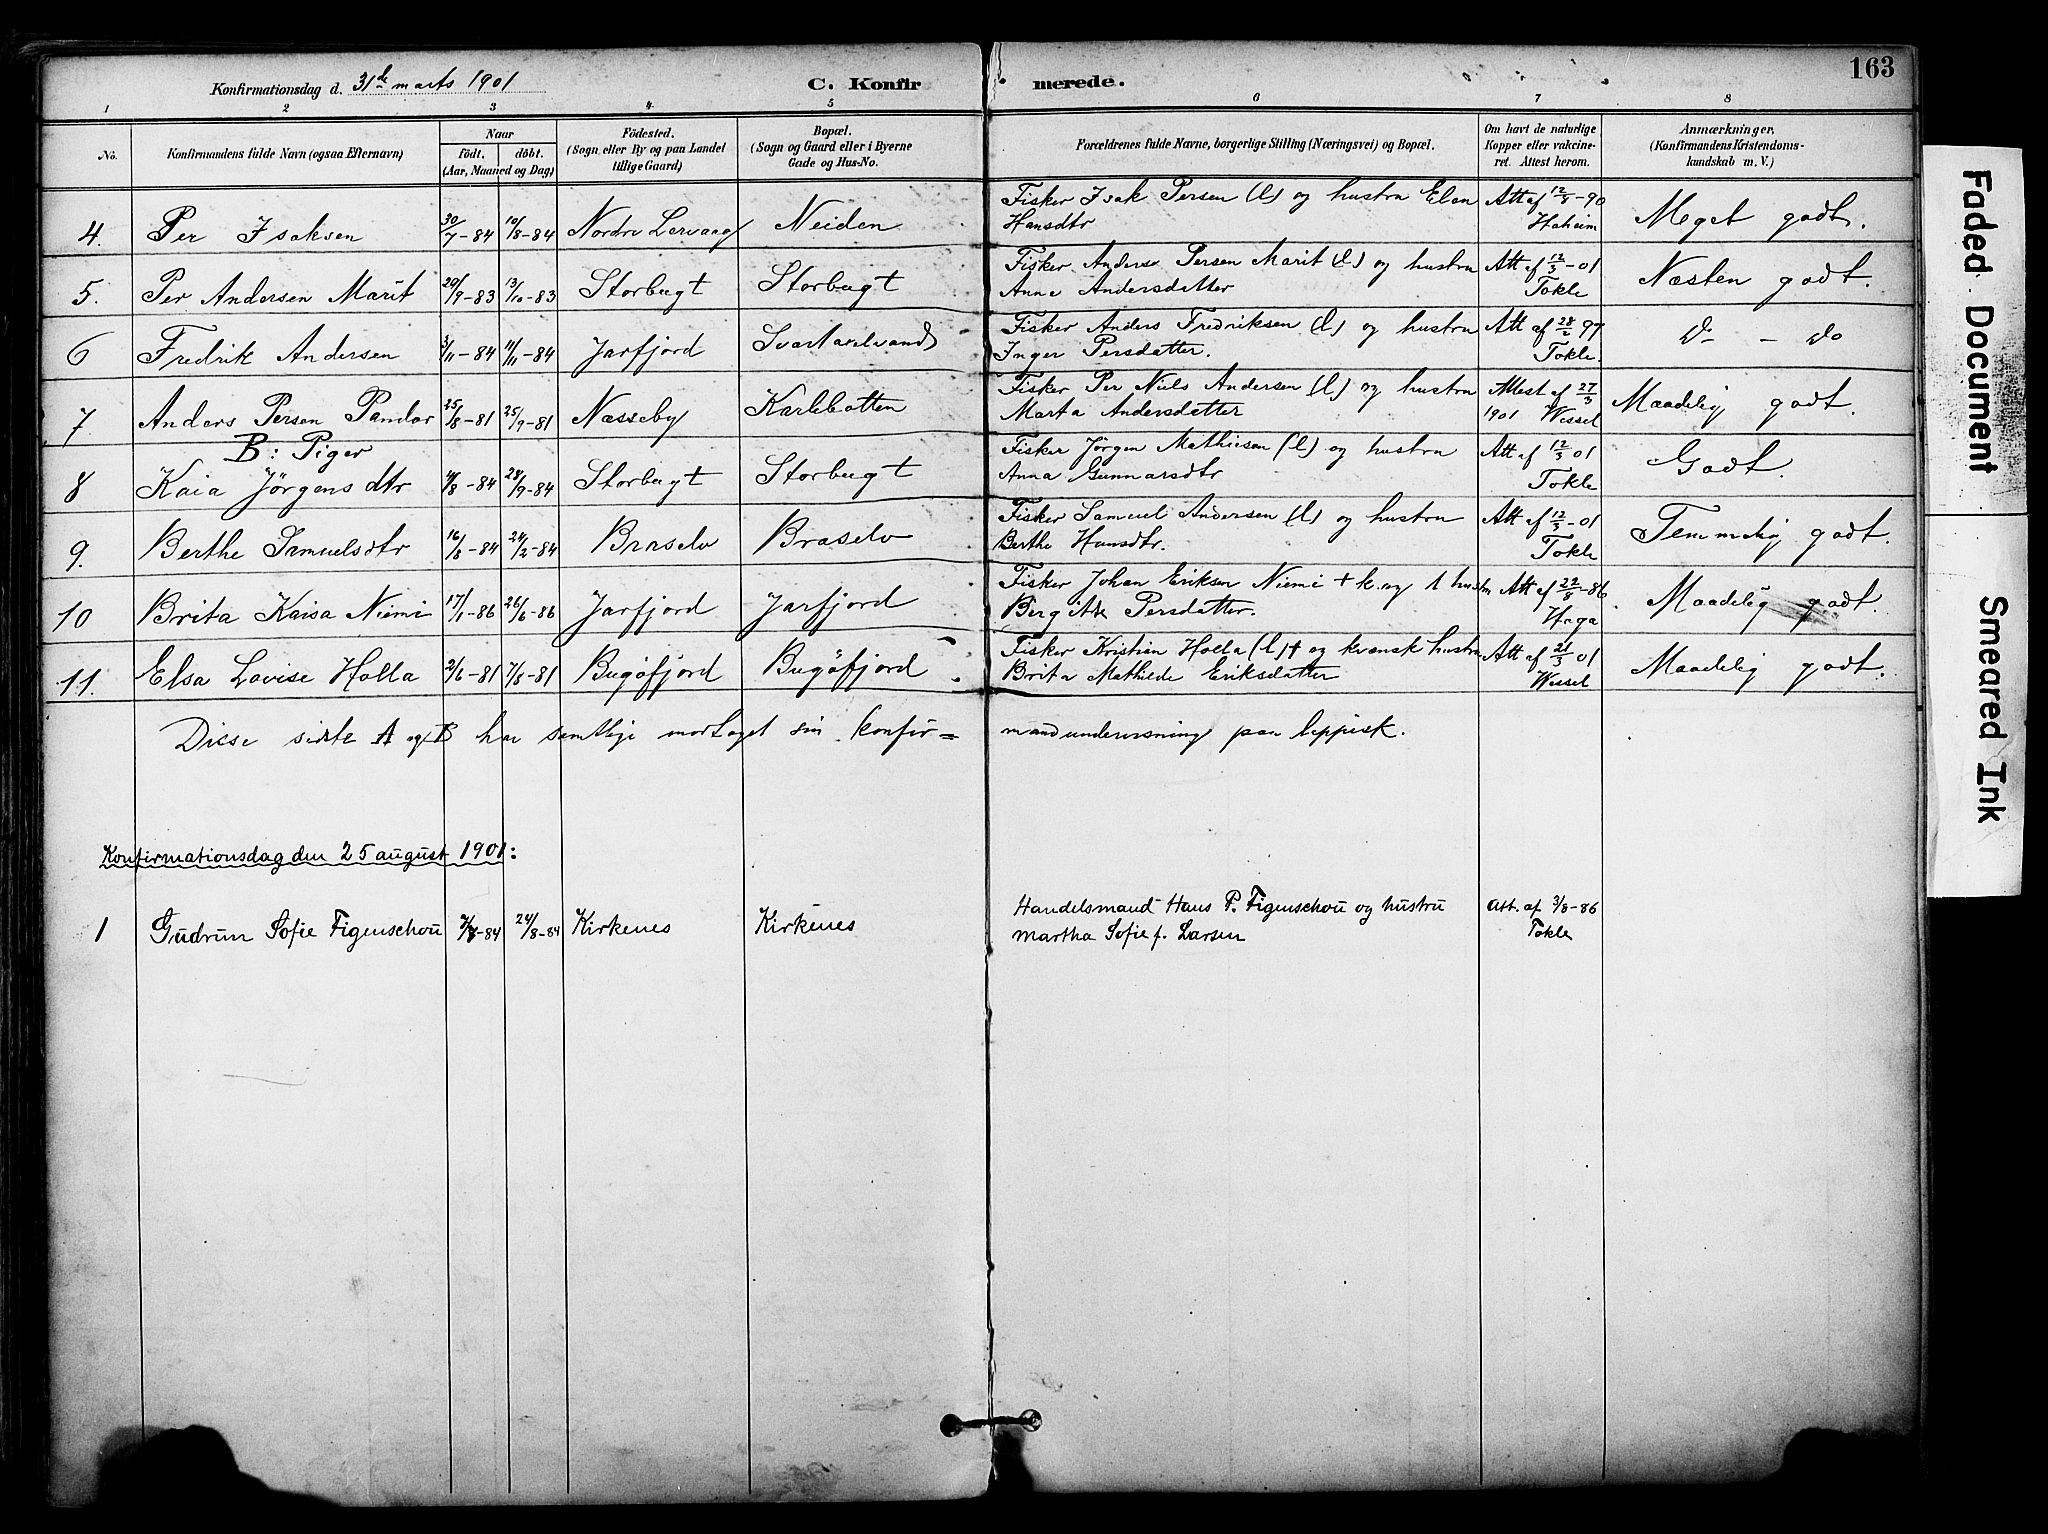 163
Konfirmationsdag d. 31de marts 1901 C. Konfirmerede.
1 2 3 4 5 6 7 8
No. Konfirmandens fulde Navn (ogsaa Efternavn) Naar födt. döbt. (Aar, Maaned og Dag) Födested. (Sogn eller By og paa Landet tillige Gaard) Bopæl. (Sogn og Gaard eller i Byerne Gade og Hus-No. Forældrenes fulde Navne, borgerlige Stilling (Næringsvei) og Bopæl. Om havt de naturlige Kopper eller vakcineret. Attest herom. Anmærkninger. (Konfirmandens Kristendomskundskab m. V.)
4. Per Isaksen 30/7-84 10/8-84 Nordre Lervaag Neiden Fisker Isak Persen (l) og hustru Elen Hansdtr Att af 12/8-90 Haheim Meget godt.
5. Per Andersen Marit 29/9-83 13/10-83 Storbugt Storbugt Fisker Anders Persen Marit (l) og hustru Anna Andersdatter Att af 12/3-01 Tokle Næsten godt.
6 Fredrik Andersen 3/11-84 11/11-84 Jarfjord Fisker Anders Fredriksen (l) og hustru Inger Persdatter. Att af 28/2 97 Tokle. Do - do
7 Anders Persen Pandor 25/8-81 25/9-81 Næsseby Karlebotten Fisker Per Niels Andersen (l) og hustru Marta Andersdatter Attest af 27/3 1901 Wessel Maadelig godt.
B: Piger
8 Kaia Jörgensdtr 4/8-84 28/9-84 Storbugt Storbugt Fisker Jörgen Mathisen (l) og hustru Anna Gunnarsdtr Att af 12/3 01 Tokle Godt.
9. Berthe Samuelsdtr 16/8-84 24/2-84 Braselv Braselv Fisker Samuel Andersen (l) og hustru Berthe Hansdtr. Att af 12/3-01 Tokle Temmelig godt.
10 Brita Kaisa Niemi 17/1-86 26/6-86 Jarfjord Jarfjord Fisker Johan Eriksen Niemi + k. og l hustru Bergitte Persdatter. Att af 22/8-86 Haga Maadelig godt.
11. Elsa Lovise Holla 2/6-81 7/8-81 Bugöfjord Bugöfjord Fisker Kristian Holla (l)+ og kvensk hustru Brita Mathilde Eriksdatter Att af 21/3 01 Wessel Maadelig godt.
Disse sidste A og B har samtlige modtaget sin konfir=mandundervisning paa lappisk.
Konfirmationsdag den 25 august 1901:
1 Gudrun Sofie Figenschou 7/8-84 24/8-84 Kirkenes Kirkenes Handelsmand Hans P. Figenschou og hustru Martha Sofie f. Larsen Att. af 3/8-86 Tokle
Faded Document
Smeared Ink